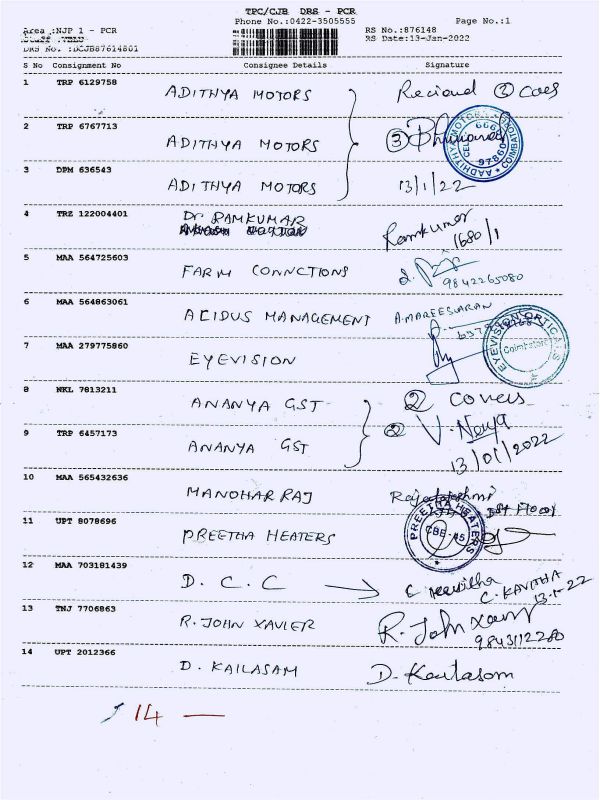 TPC/CJB DRS - PCR
Area :NJP 1 - PCR Phone No.:0422-3505555 Page No.:1
RS No.:876148
RS Date:13-Jan-2022
DRS No. :DCJB87614801
S No Consignment No Consignee Details Signature
1 TRP 6129758 ADITHYA MOTORS
2 TRP 6767713 ADITHYA MOTORS 3
3 DPM 636543 ADITHYA MOTORS 13/1/22
4 TRZ 122004401 Dr RAMKUMAR Ramkumar
5 MAA 564725603 FARM CONNCTIONS 9842265080
6 MAA 564863061 ACIDUS MANAGEMENT A.MAREESWARAN
7 MAA 279775860 EYEVISION EYEVISION OPTICALS Coimbatore
8 NKL 7813211 ANANYA GST 2 covers
9 TRP 6457173 ANANYA GST 2 V. Navya
13/01/2022
10 MAA 565432636 MANOHAR RAJ Rajalakshmi
11 UPT 8078696 PREETHA HEATERS PREETHA HEATERS CBE-45
12 MAA 703181439 D. C. C C. KAVITHA
13-1-22
13 TNJ 7706863 R. JOHN XAVIER R. John Xavier
14 UPT 2012366 D. KAILASAM D. Kailasam
14 —